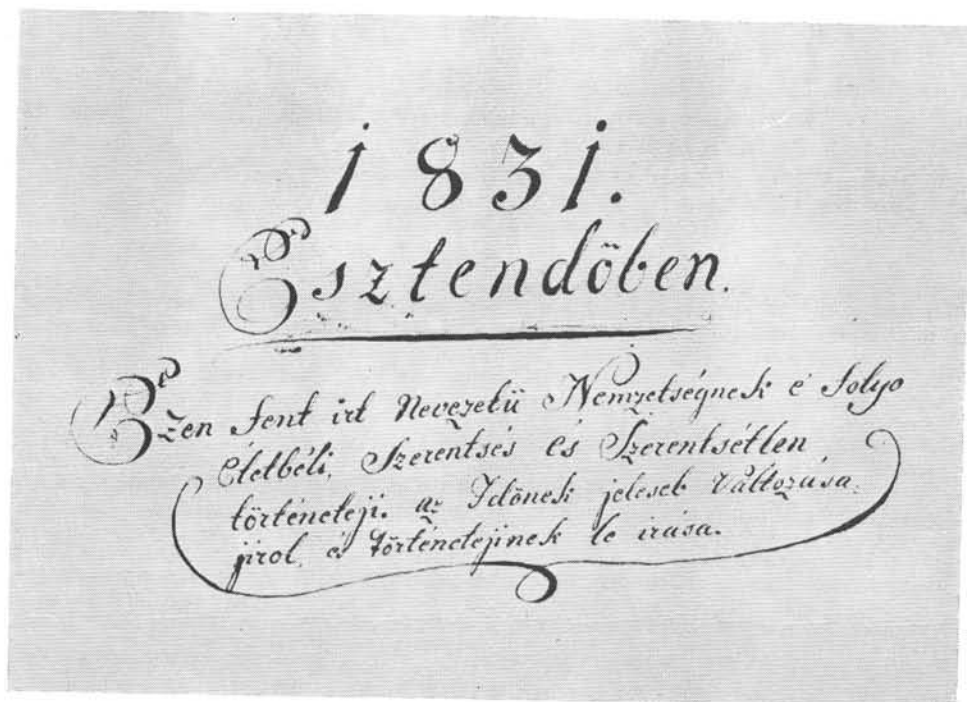 1831.
Esztendőben.
Ezen fent irt Nevezetü Nemzetségnek é folyo
Életbéli, Szerentsés és Szerentsétlen
történeteji. az Idönek jeleseb Változása-
jirol, és Történetejinek le irása.